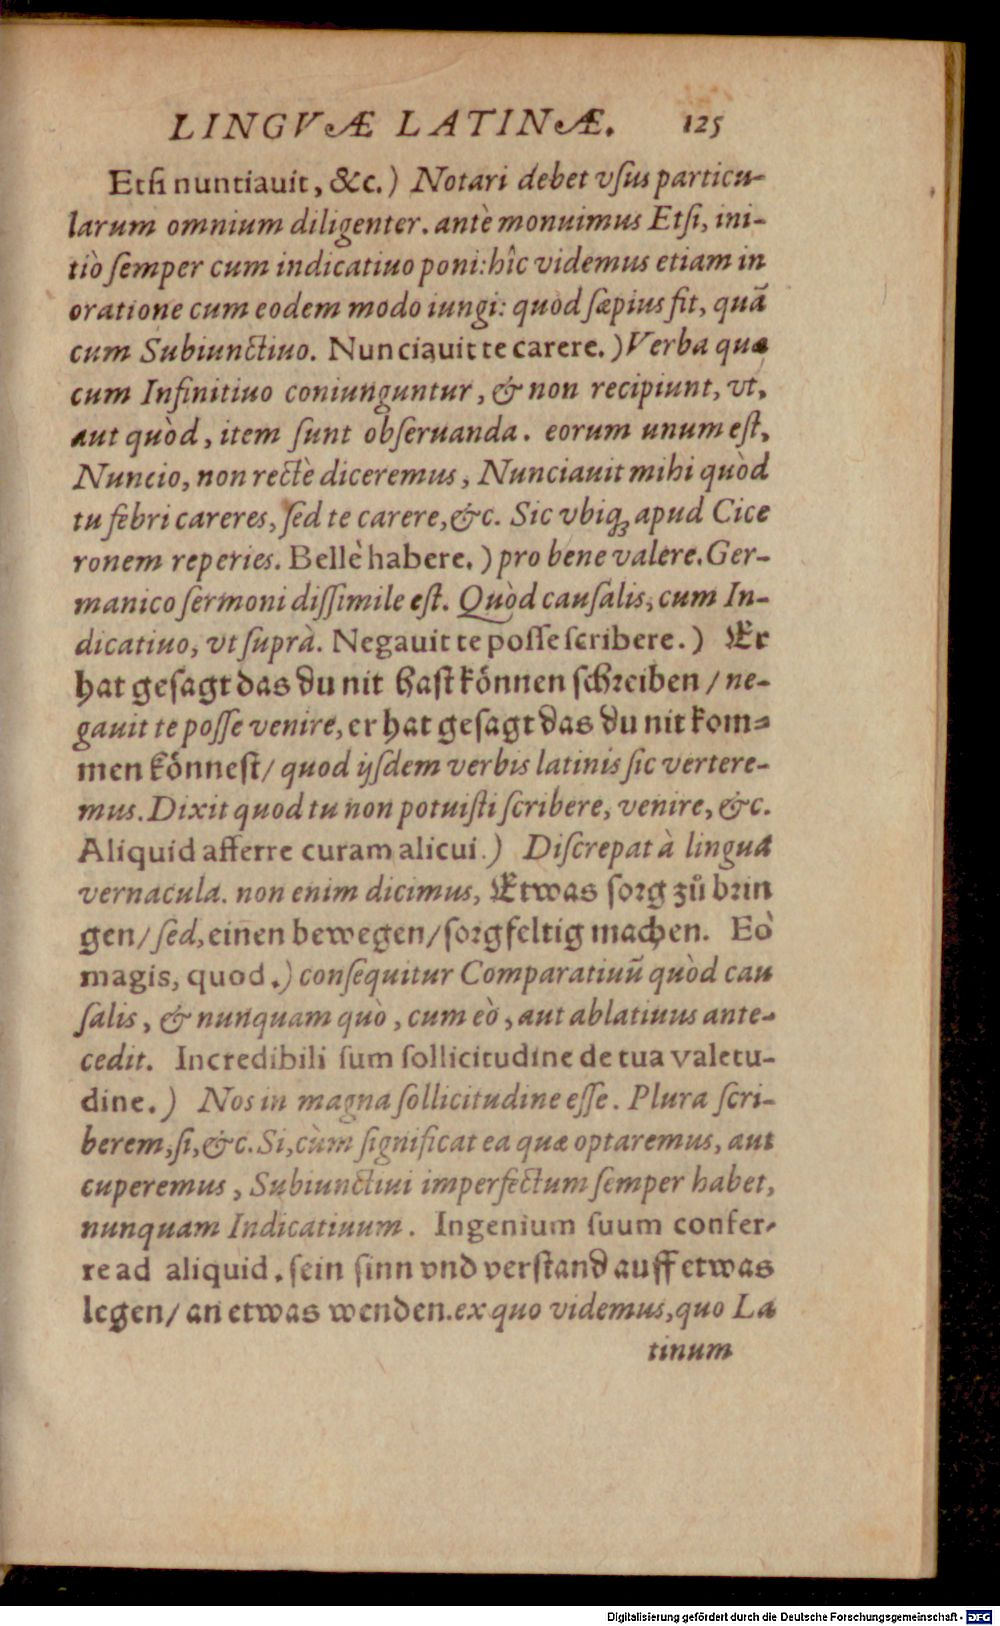 LINGVÆ LATINÆ. 125
Etſi nuntiauit, &c.) Notari debet vſus particu-
larum omnium diligenter. antè monuimus Etſi, ini-
tiò ſemper cum indicatiuo poni: hîc videmus etiam in
oratione cum eodem modo iungi: quòd ſæpius fit, quã
cum Subiunctiuo. Nunciauit te carere.) Verba quæ
cum Infinitiuo coniunguntur, & non recipiunt, vt,
aut quòd, item ſunt obſeruanda. eorum unum eſt,
Nuncio, non rectè diceremus, Nunciauit mihi quòd
tu febri careres, ſed te carere, &c. Sic vbiqꝫ apud Cice
ronem reperies. Bellè habere.) pro bene valere. Ger-
manico ſermoni diſſimile eſt. Quòd cauſalis, cum In-
dicatiuo, vt ſuprà. Negauit te poſſe ſcribere.) Er
hat geſagt das du nit haſt können ſchreiben / ne-
gauit te poſſe venire, er hat geſagt das du nit kom-
men könneſt / quod ijſdem verbis latinis ſic vertere-
mus. Dixit quod tu non potuiſti ſcribere, venire, &c.
Aliquid afferre curam alicui.) Diſcrepat à lingua
vernacula. non enim dicimus, Etwas ſorg zů brin
gen / ſed, einen bewegen / ſorgfeltig machen. Eò
magis, quod.) conſequitur Comparatiuũ quòd cau
ſalis, & nunquam quò, cum eò, aut ablatiuus ante-
cedit. Incredibili ſum ſollicitudine de tua valetu-
dine.) Nos in magna ſollicitudine eſſe. Plura ſcri-
berem, ſi, &c. Si, cùm ſignificat ea quæ optaremus, aut
cuperemus, Subiunctiui imperfectum ſemper habet,
nunquam Indicatiuum. Ingenium ſuum confer-
re ad aliquid. ſein ſinn vnd verſtand auff etwas
legen / an etwas wenden. ex quo videmus, quo La
tinum
Digitalisierung gefördert durch die Deutsche Forschungsgemeinschaft - DFG